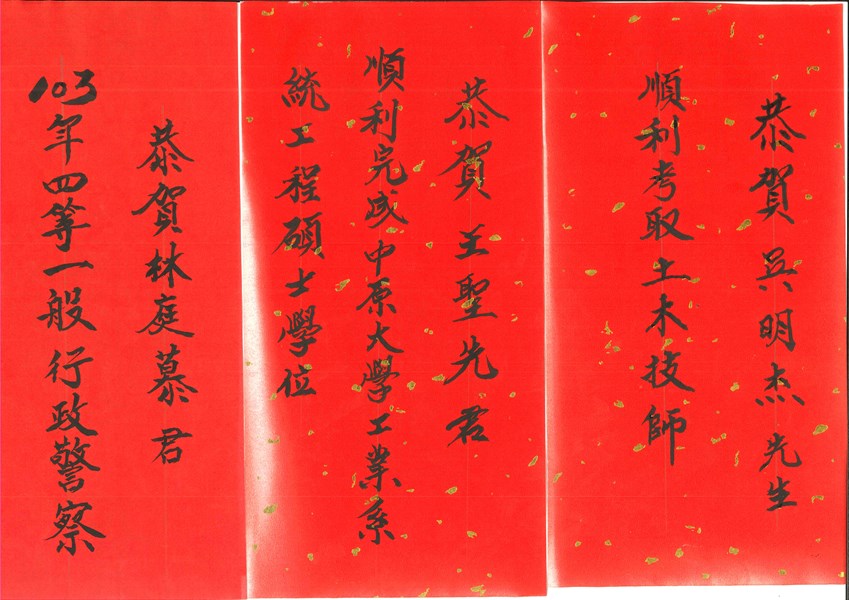 恭賀吳明杰先生
順利考取土木技師
恭賀王聖先君
順利完成中原大學工業系
統工程碩士學位
恭賀林庭慕君
103年四等一般行政警察